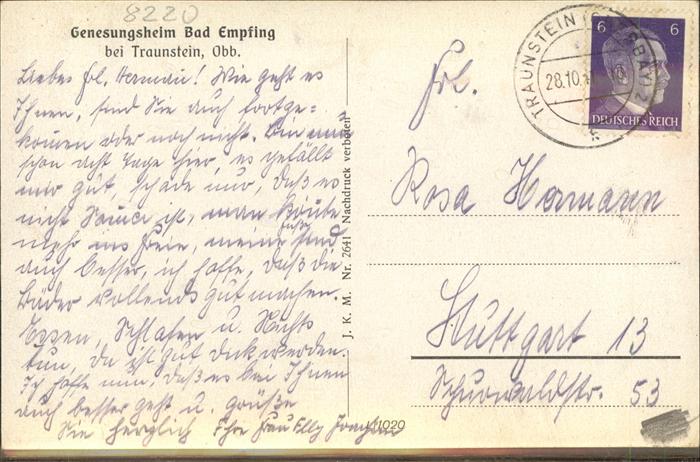 8220
Genesungsheim Bad Empfing
bei Traunstein, Obb.
Liebes Frl. Hermann! Wie geht es
Ihnen, sind Sie auch fortge=
kommen oder noch nicht. Bin nun
schon acht Tage hier, es gefällt
mir gut, schade nur, daß es
nicht Sommer ist, man könnte
mehr ins Freie, meine Füße sind
auch besser, ich hoffe, daß die
Bäder vollends gut machen.
Essen, Schlafen u. Nichts
tun, da ist gut dick werden.
Ich hoffe nun, daß es bei Ihnen
auch besser geht u. grüße
Sie herzlich Ihre Frau Elly
J. K. M. Nr. 2641 Nachdruck verboten
TRAUNSTEIN
28.10.
6 6
DEUTSCHES REICH
Frl.
Rosa Hermann
Stuttgart 13
Schurwaldstr. 53